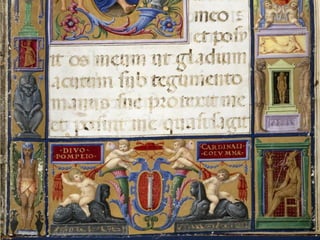 meo is
et posu
it os meum ut gladium
acutum sub tegumento
manus sue protexit me
et posuit me quasi sagit
·DIVO·
POMPEIO·
CARDINALI
COLVMNA·